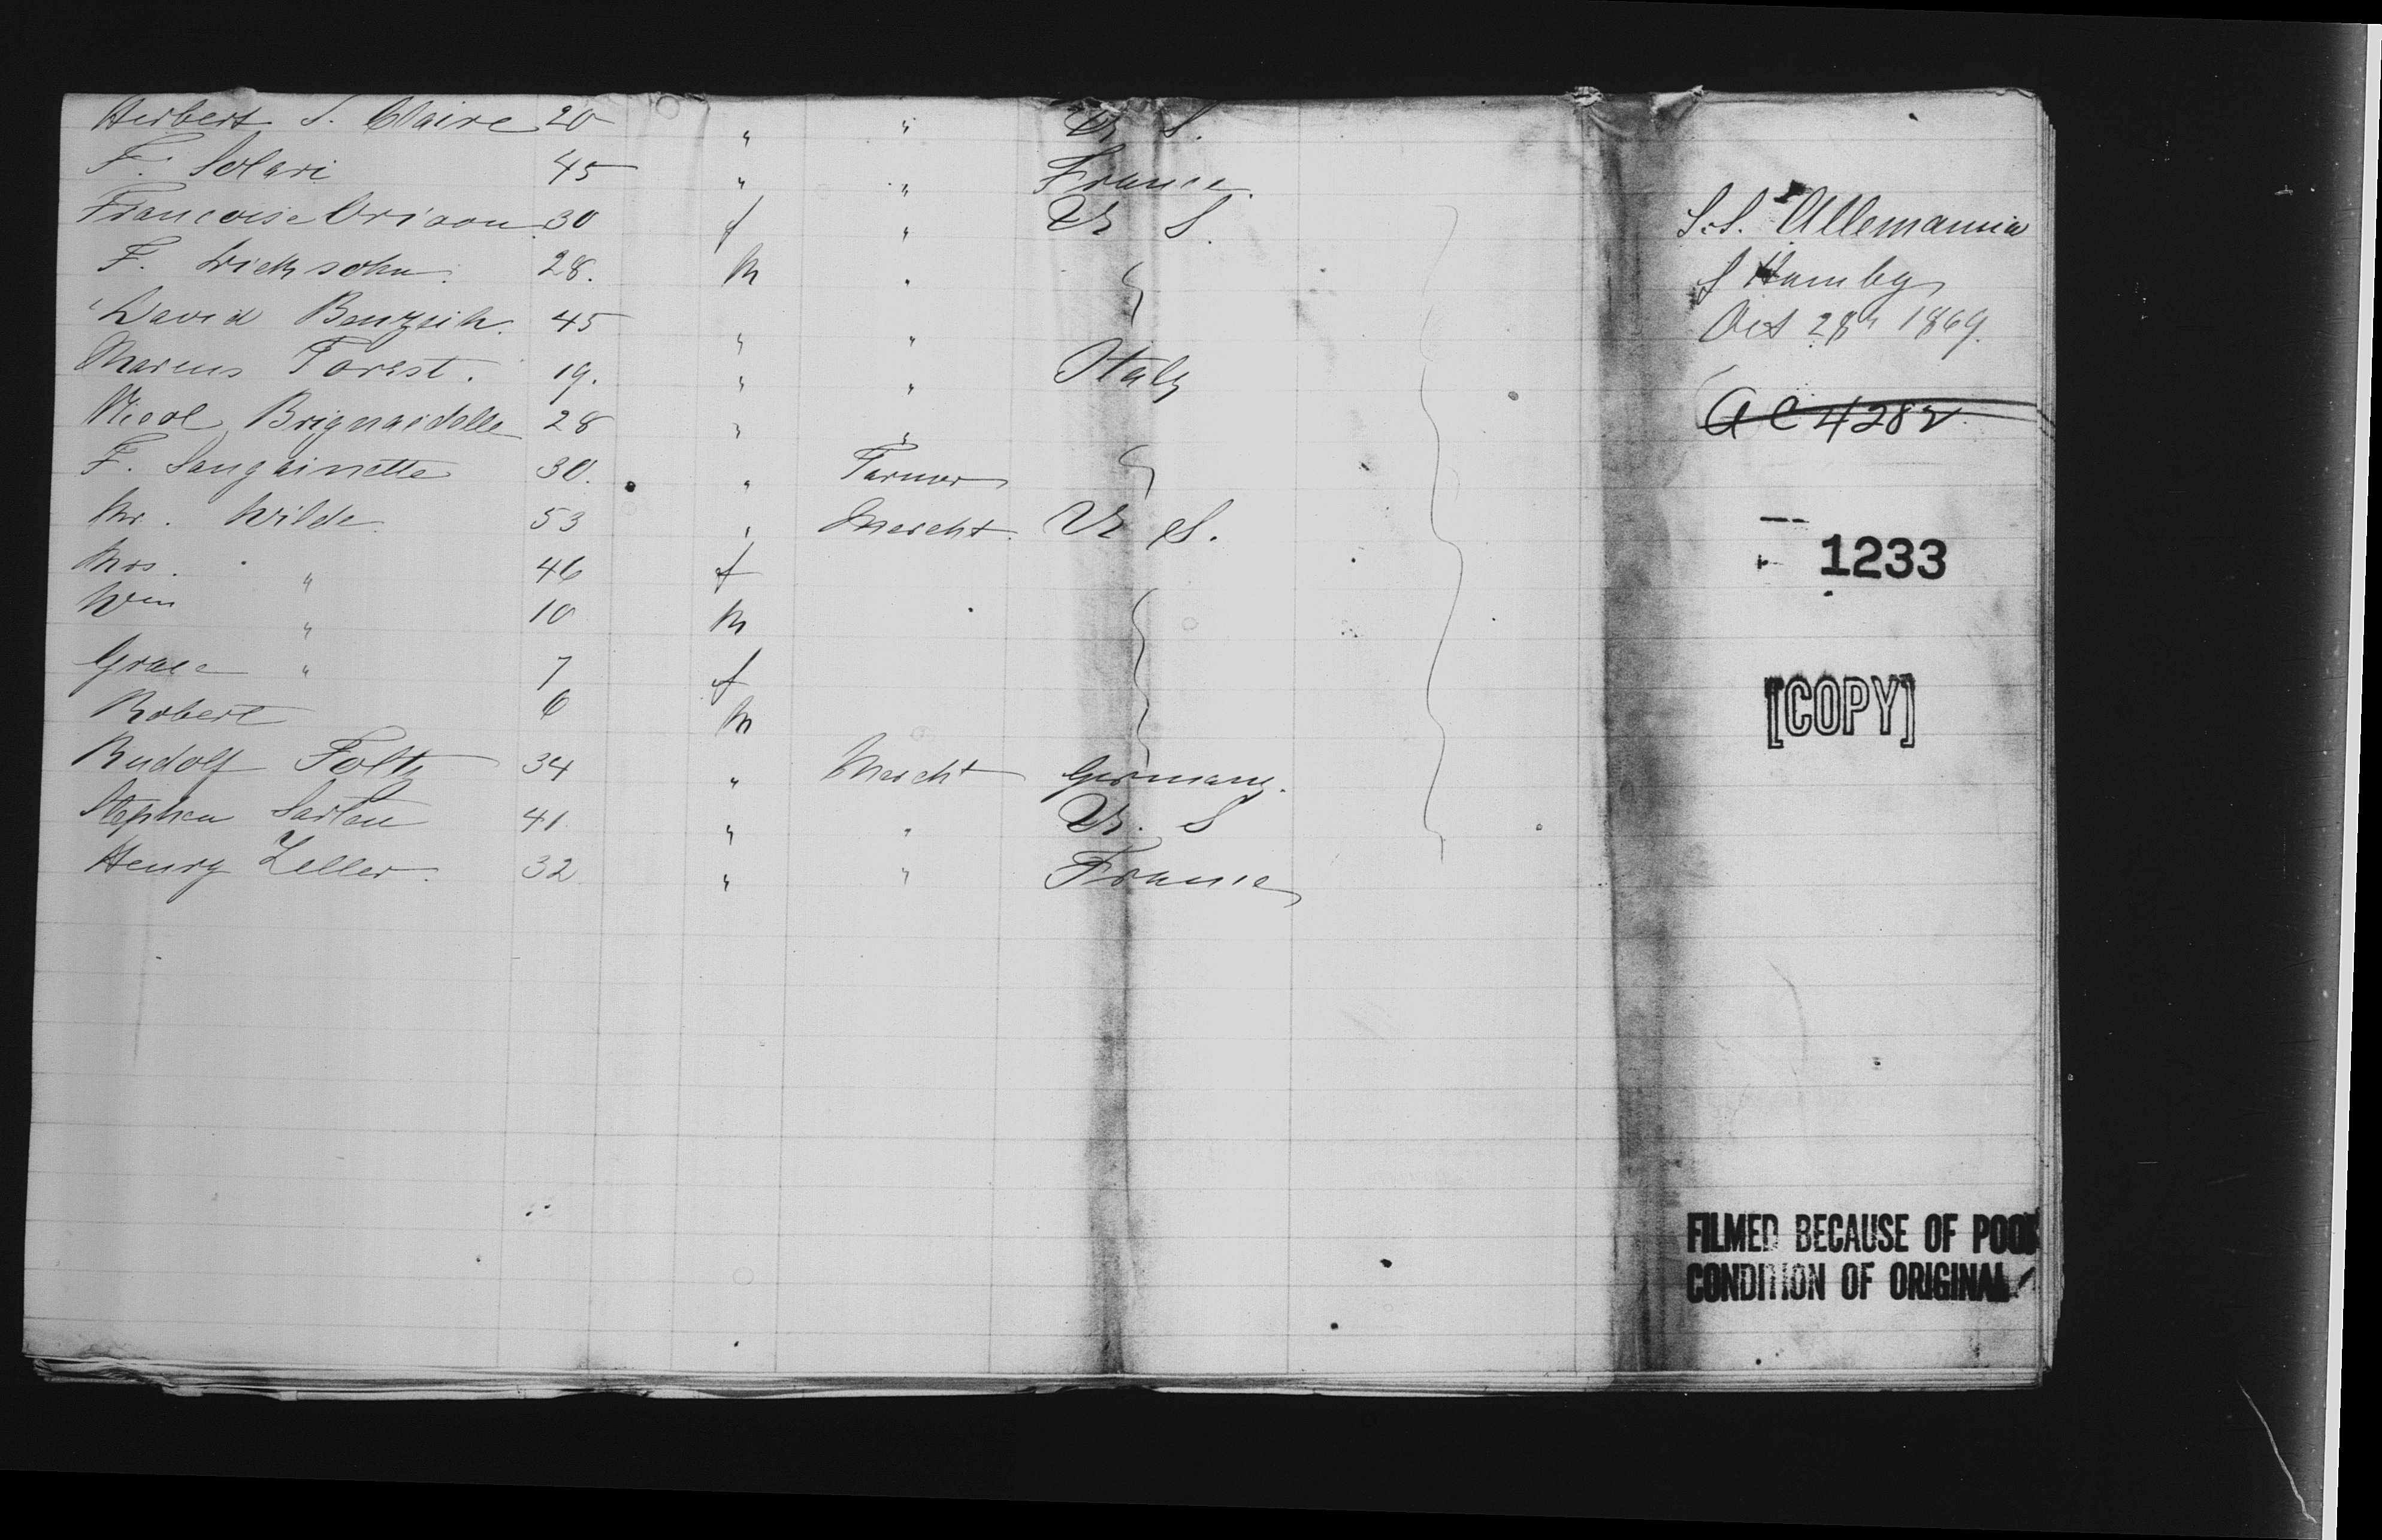 Herbert S. Claire 20 " " U S.
F. Solari 45 " " France
Francoise 30 f " U S.
F. Dicksohn 28. m "
David 45 " "
Marcus Forest. 19. " " Italy
Nicol 28 " "
F. Sanguinette 30. " Farmer
Mr. Wilde 53 " Mercht. U S.
Mrs. " 46 f
Wm " 10 m
Grace " 7 f
Robert 6 m
Rudolf Foltz 34 " Mercht Germany.
Stephen 41 " " U. S
Henry Zeller. 32 " " France
S.S. Allemannia
f Hambg
Oct 28th 1869.
A C 4282
1233
[COPY]
FILMED BECAUSE OF POOR
CONDITION OF ORIGINAL